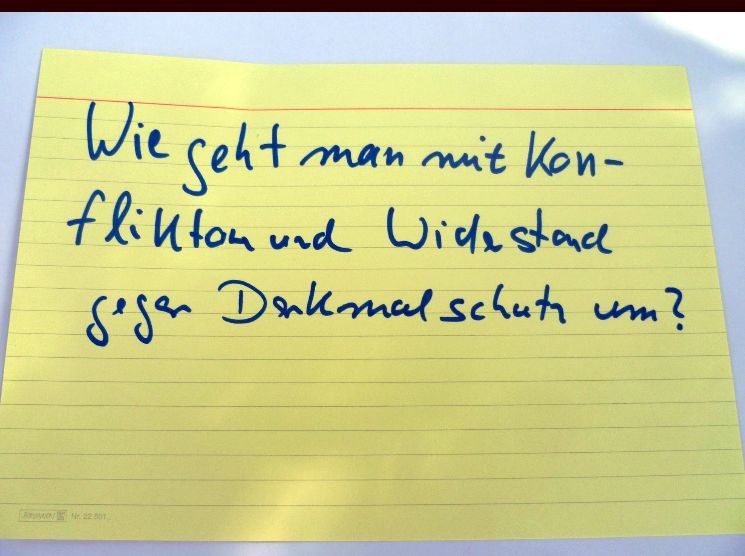 Wie geht man mit Kon-
flikten und Widerstand
gegen Denkmalschutz um?
Nr. 22 501